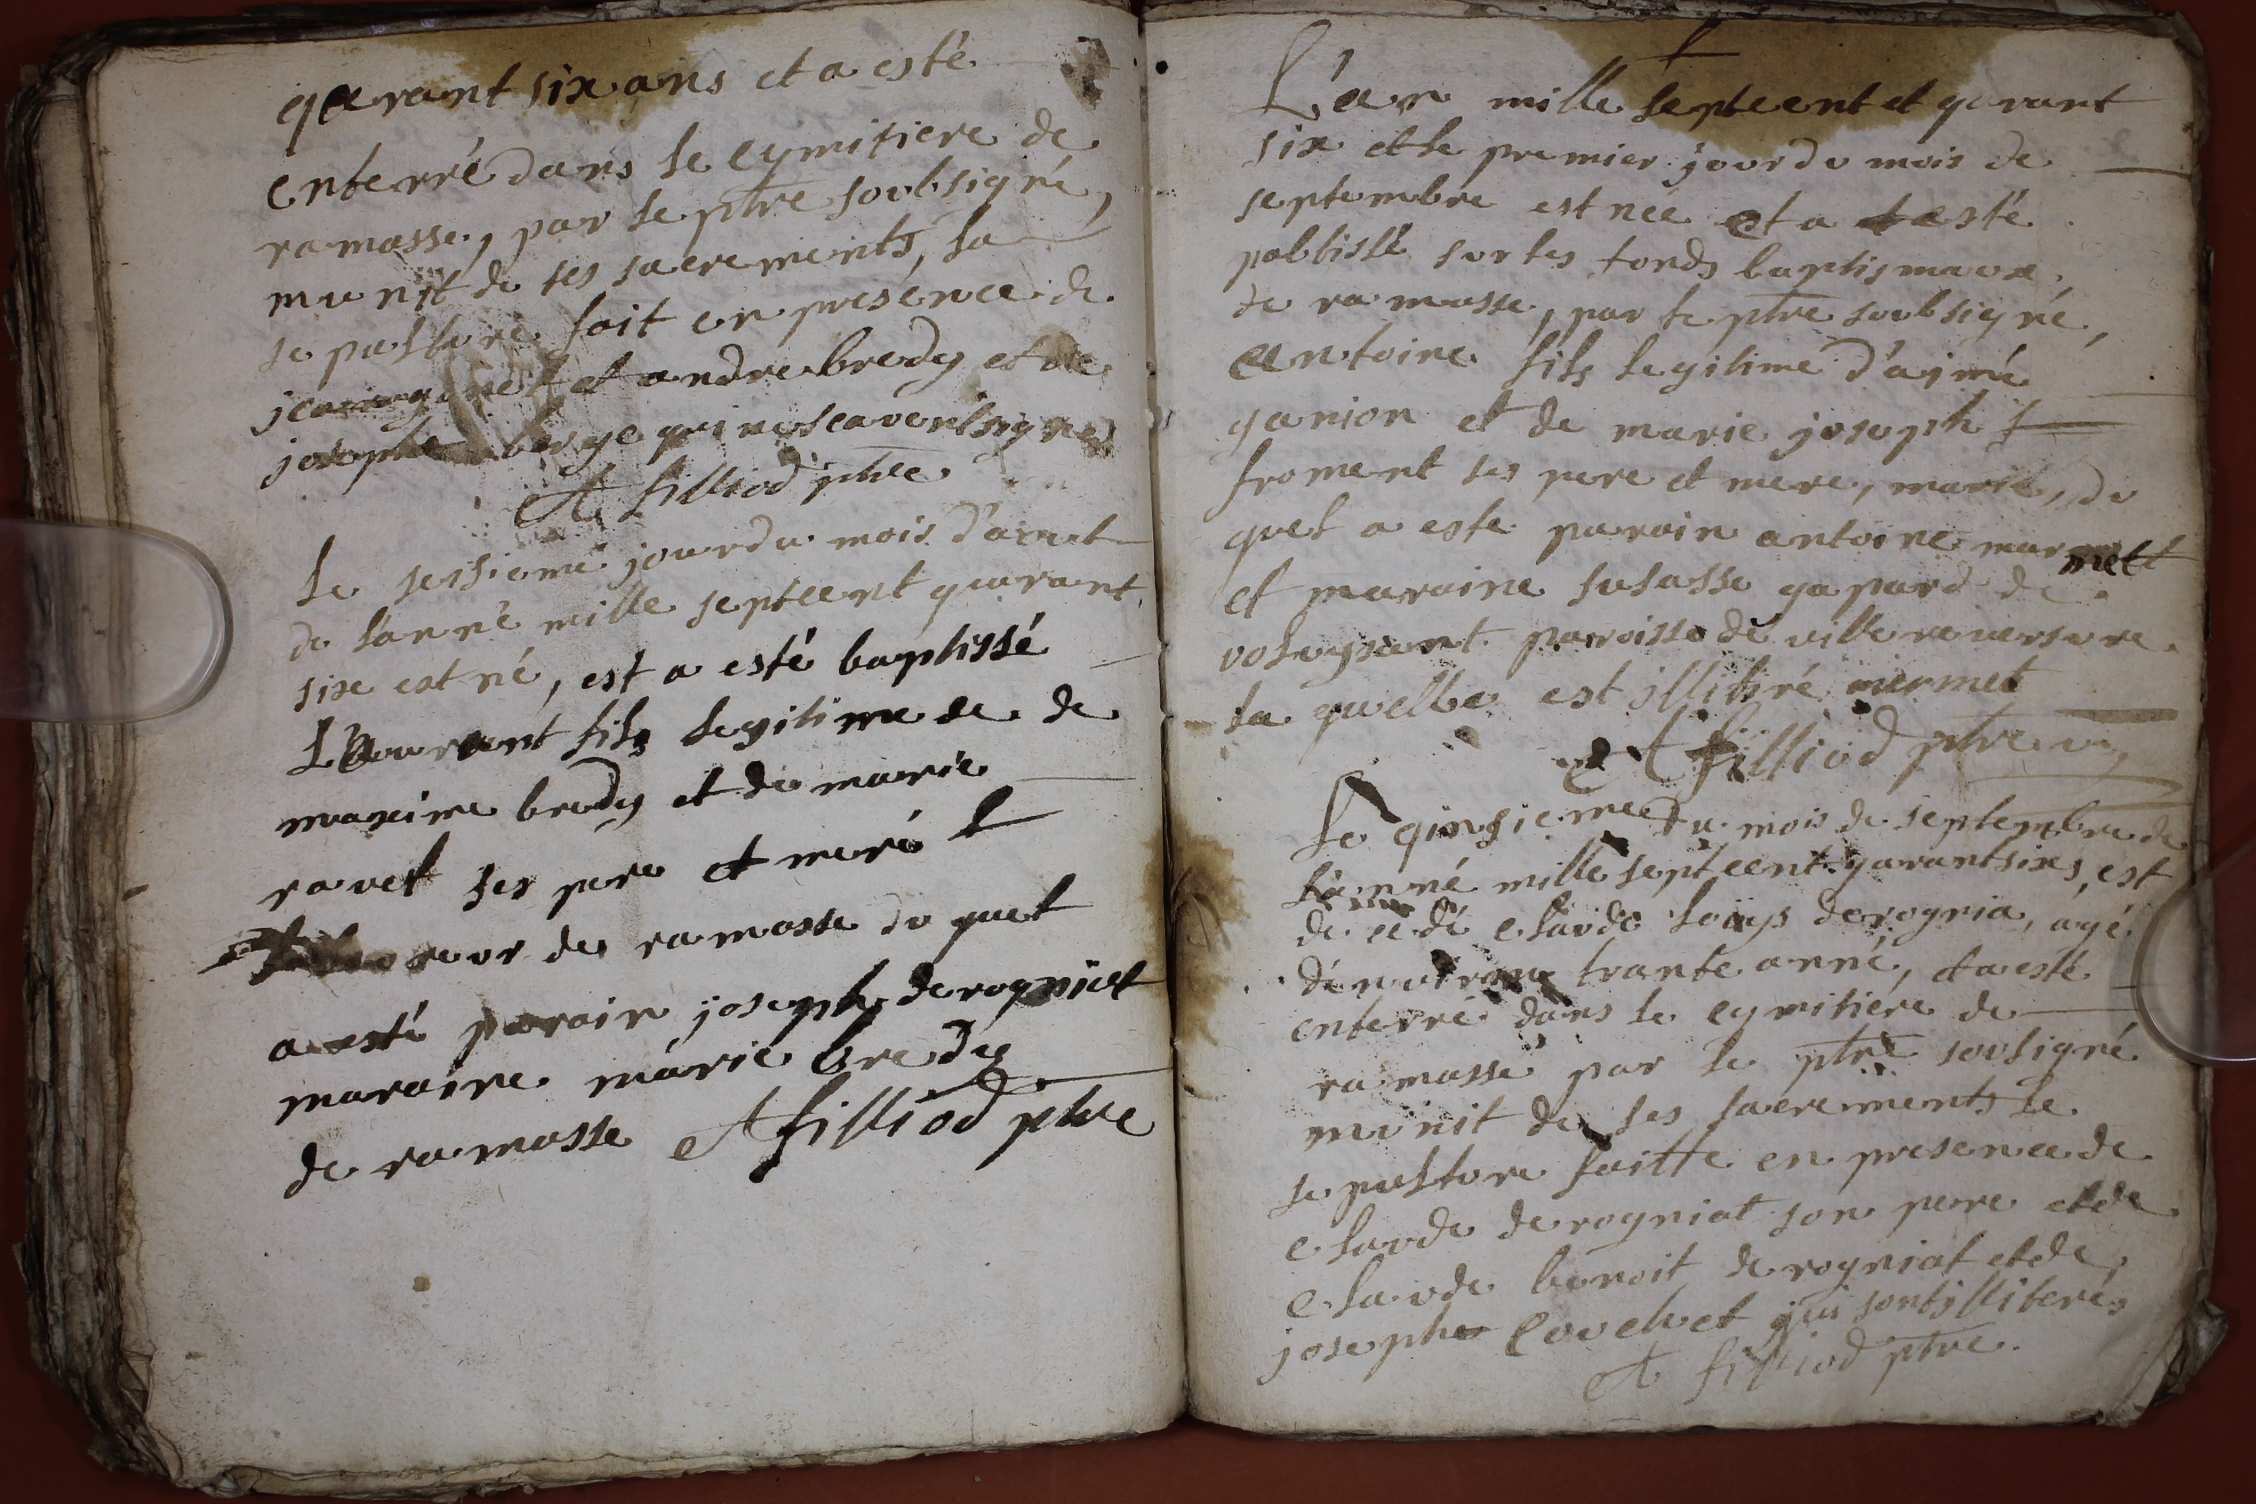 qarant six ans et a esté
enterré dans le cymitiere de
ramasse, par le ptre soubsigné,
munit de ses sacrements, la
sepulture fait en presence de
et andre bredy et de
joseph qui ne scavent signer
A filliod ptre
le sesieme jour du mois d'aout
de l'anné mille septcent quarant
six est né, est a esté baptissé
Laurant fils legitime de de
maxime bredy et de marie
ravet ses pere et meré
de ramasse du quel
a esté parain joseph derogniat
maraine marie bredy
de ramasse A filliod ptre
L'an mille septcent et qarant
six et le premier jour du mois de
septembre est nee et a esté
pabtissé sur les fonds baptismaux,
de ramasse, par le ptre soubsigné,
antoine fils legitime d'aimé
ganion et de marie joseph f
froment ses pere et mere, marié, du
quel a este parain antoine mar
mett
et maraine susasse gapard de
volognant paroisse de ville reversure
la quelle est illitiré mermet
A filliod ptre
Le qinsieme du mois de septembre de
l'anné mille septcent qarant sixs, est
decedé claude louys derognia, agé
d'environ trante anné, et a esté
enterré dans le cymitiére de
ramasse par le ptre sousigné
munit de ses sacrements le
sepulture faitte en presence de
claude derogniat son pere et de
claude benoit derogniat et de
joseph couchet qui sont illiterés
A filliod ptre.